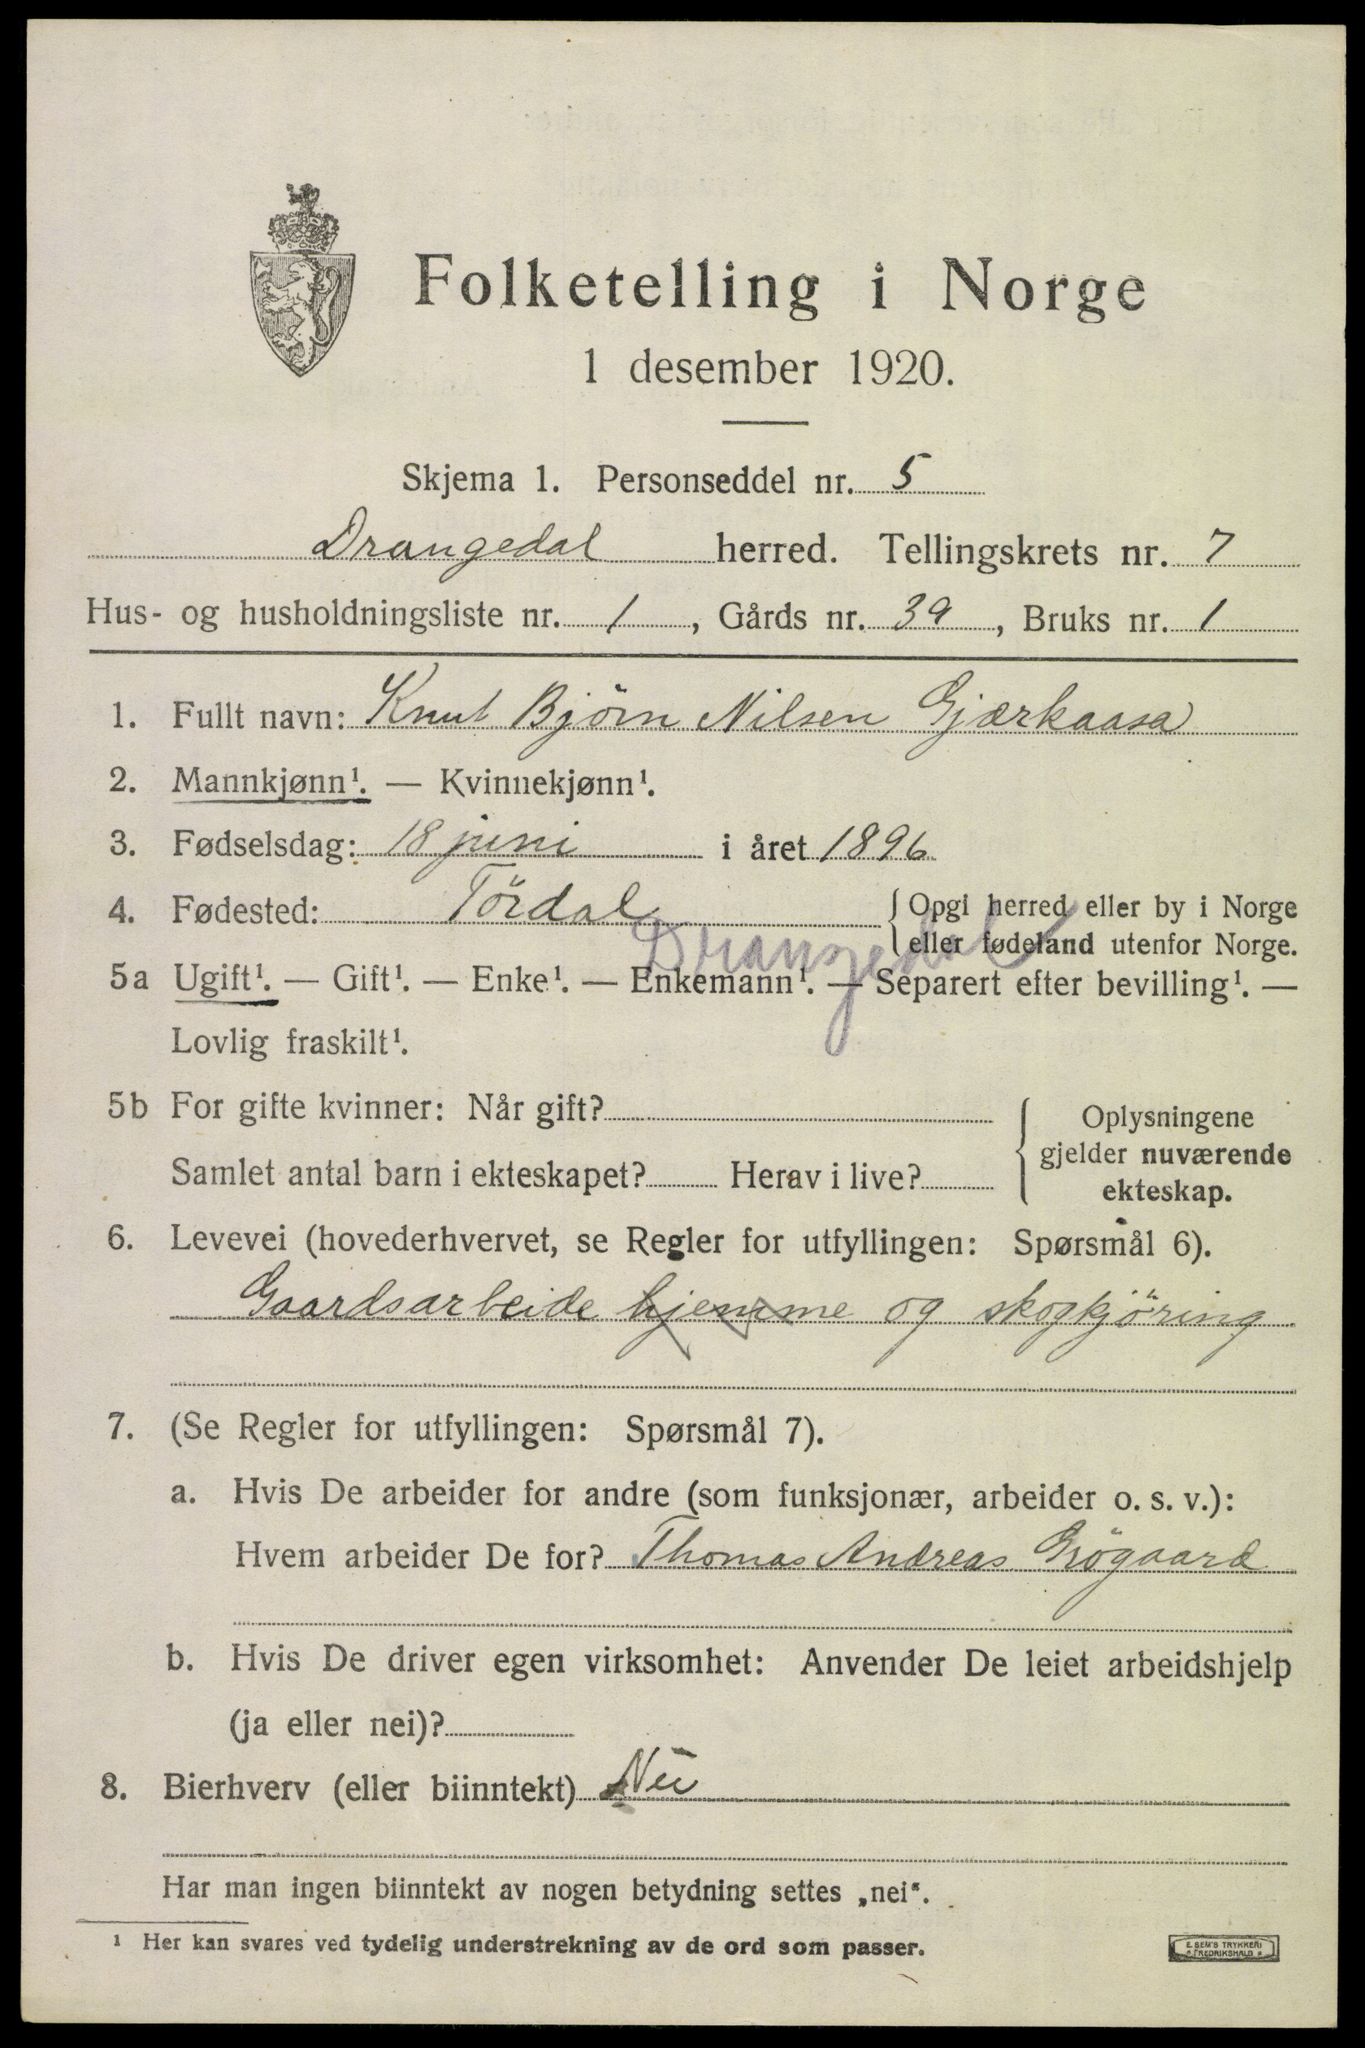 Folketelling i Norge
1 desember 1920.
Skjema 1. Personseddel nr. 5
Drangedal herred. Tellingskrets nr. 7
Hus- og husholdningsliste nr. 1, Gårds nr. 39, Bruks nr. 1
1. Fullt navn: Knut Bjørn Nilsen Gjærkaasa
2. Mannkjønn¹. — Kvinnekjønn¹.
3. Fødselsdag: 18 juni i året 1896
4. Fødested: Tördal { Opgi herred eller by i Norge
eller fødeland utenfor Norge.
Drangedal
5a Ugift¹. — Gift¹. — Enke¹. — Enkemann¹. — Separert efter bevilling¹. —
Lovlig fraskilt¹.
5b For gifte kvinner: Når gift?
Samlet antal barn i ekteskapet? Herav i live?
{ Oplysningene
gjelder nuværende
ekteskap.
6. Levevei (hovederhvervet, se Regler for utfyllingen: Spørsmål 6).
Gaardsarbeide hjemme og skogkjöring
7. (Se Regler for utfyllingen: Spørsmål 7).
a. Hvis De arbeider for andre (som funksjonær, arbeider o. s. v.):
Hvem arbeider De for? Thomas Andreas Grögaard
b. Hvis De driver egen virksomhet: Anvender De leiet arbeidshjelp
(ja eller nei)?
8. Bierhverv (eller biinntekt) Nei
Har man ingen biinntekt av nogen betydning settes „nei“.
¹ Her kan svares ved tydelig understrekning av de ord som passer.
E. SEM'S TRYKKERI
FREDRIKSHALD